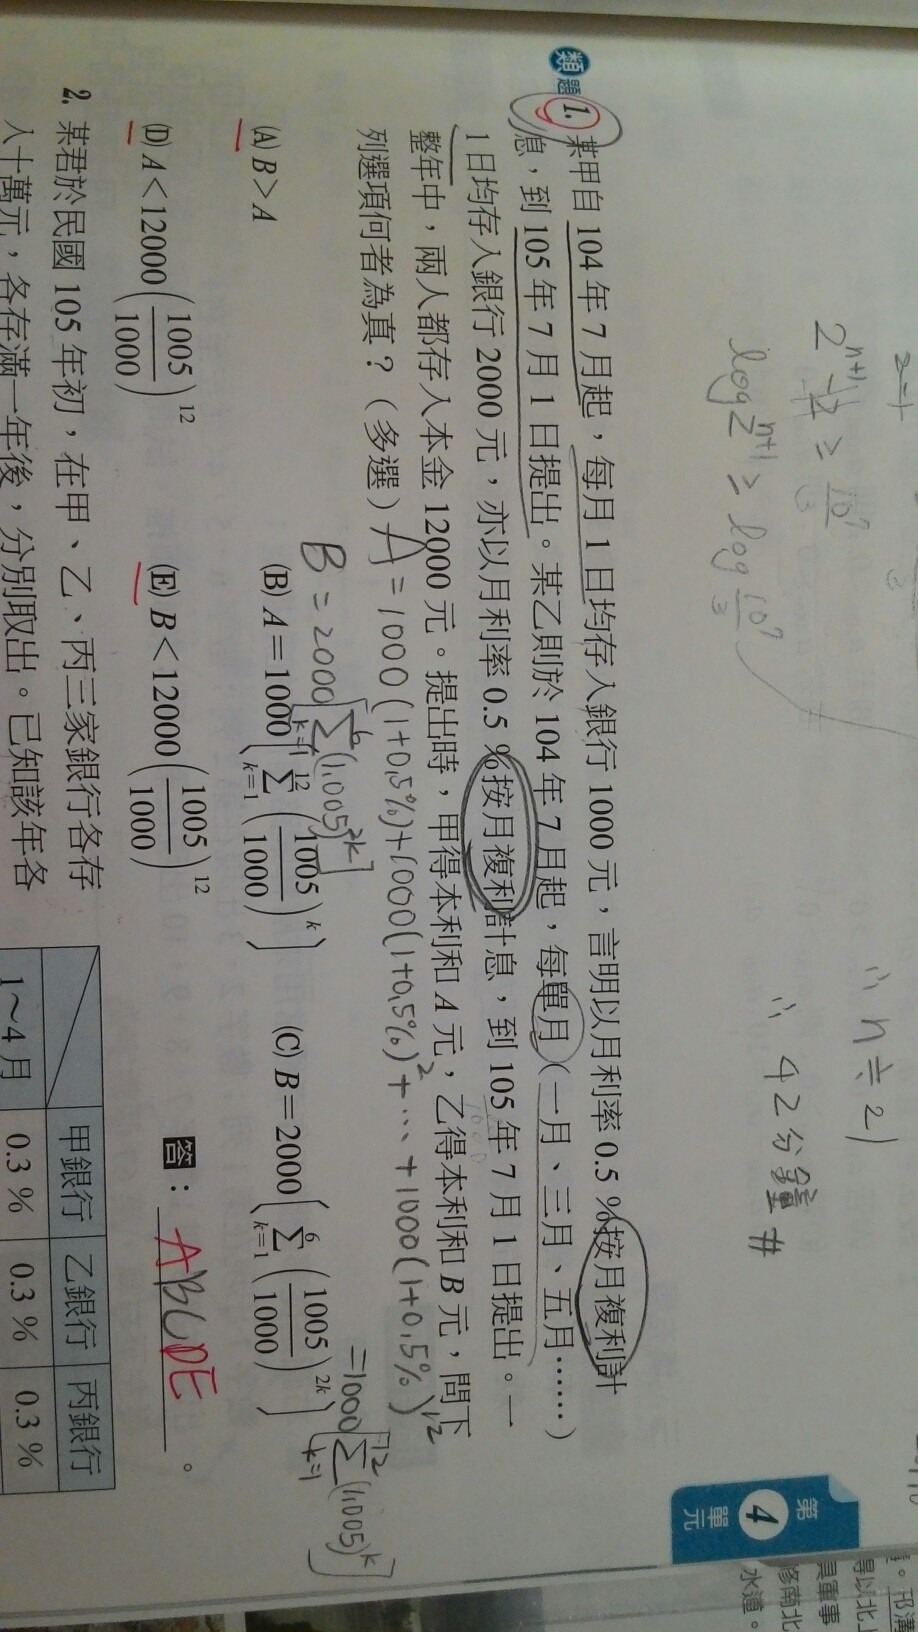 2^{n+1}-2 ≥ 10^7/3
log 2^{n+1} ≥ log 10^7/3
∴ n ≒ 21
∴ 42分鐘 #
第
4
單元
類題
1. 某甲自 104 年 7 月起，每月 1 日均存入銀行 1000 元，言明以月利率 0.5 %按月複利計
息，到 105 年 7 月 1 日提出。某乙則於 104 年 7 月起，每單月（一月、三月、五月……）
1 日均存入銀行 2000 元，亦以月利率 0.5 %按月複利計息，到 105 年 7 月 1 日提出。一
整年中，兩人都存入本金 12000 元。提出時，甲得本利和 A 元，乙得本利和 B 元，問下
列選項何者為真？（多選）
A = 1000(1+0.5%)+1000(1+0.5%)^2+⋯+1000(1+0.5%)^12
B = 2000[Σ_{k=1}^{6}(1.005)^{2k}]
=1000[Σ_{k=1}^{12}(1.005)^k]
(A) B > A
(B) A = 1000(Σ_{k=1}^{12}(1005/1000)^k)
(C) B = 2000(Σ_{k=1}^{6}(1005/1000)^{2k})
(D) A < 12000(1005/1000)^12
(E) B < 12000(1005/1000)^12
答：ABCDE。
2. 某君於民國 105 年初，在甲、乙、丙三家銀行各存
入十萬元，各存滿一年後，分別取出。已知該年各
甲銀行 乙銀行 丙銀行
1～4 月 0.3 % 0.3 % 0.3 %
得以北上
具軍事
修南北
水道。